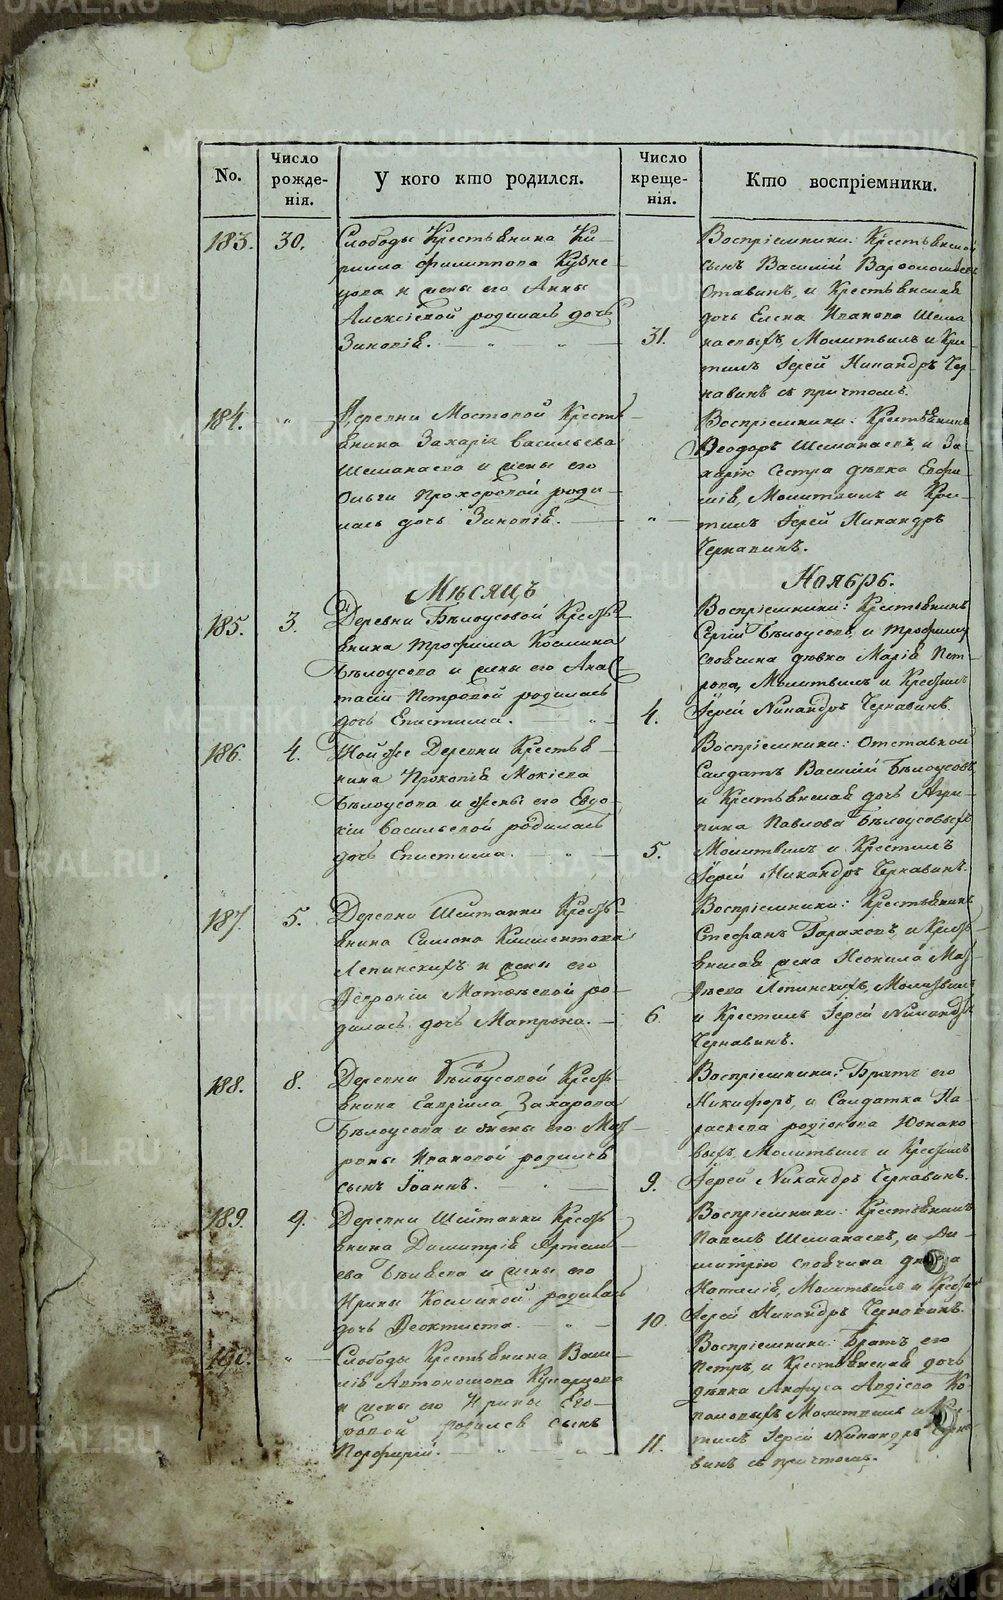 METRIKI.GASO-URAL.RU
No.
Число рожде-нія.
У кого кто родился.
Число креще-нія.
Кто воспріемники.
183. 30.
Слободы Крестьянина Ки-
рилла Филиппова Кузне
цова и жены его Анны
Алексіевой родилась дочь
Зиновія.
31.
Воспріемники: Крестьянской
сынъ Василій Варфоломѣевъ
Отавинъ, и Крестьянская
дочь Елена Иванова Шема
наевыхъ Молитвилъ и Кре-
тилъ Іерей Никандръ Чер-
навинъ съ причтомъ.
184. "
Деревни Мостовой Кресть
янина Захарія Васильева
Шеманаева и жены его
Ольги Прохоровой роди-
лась дочь Зиновія.
"
Воспріемники: Крестьянинъ
Феодоръ Шеманаевъ, и За-
харію Сестра дѣвка Евфи-
мія, Молитвилъ и Кре-
тилъ Іерей Никандръ
Чернавинъ.
Мѣсяцъ
Ноябрь.
185. 3.
Деревни Бѣлоусовой Кресть
янина Трофима Космина
Бѣлоусова и жены его Анас
тасіи Петровой родилась
дочь Епистима.
4.
Воспріемники: Крестьянинъ
Сергій Бѣлоусовъ, и Трофиму
своячина дѣвка Марія Пет-
рова, Молитвилъ и Крестилъ
Іерей Никандръ Чернавинъ.
186. 4.
Той же Деревни Крестья-
нина Прокопія Мокіева
Бѣлоусова и жены его Евдо-
кіи Васильевой родилась
дочь Епистима.
5.
Воспріемники: Отставной
Салдатъ Василій Бѣлоусовъ
и Крестьянская дочь Агри-
пина Павлова Бѣлоусовыхъ
Молитвилъ и Крестилъ
Іерей Никандръ Чернавинъ.
187. 5.
Деревни Шайтанки Кресть-
янина Симона Климентова
Лепинскихъ и жены его
Февроніи Матвѣевой ро-
дилась дочь Матрона.
6.
Воспріемники: Крестьянинъ
Стефанъ Гараховъ, и Кресть-
янская жена Неонила Мат-
вѣева Лепинскихъ, Молитвилъ
и Крестилъ Іерей Никандръ
Чернавинъ.
188. 8.
Деревни Бѣлоусовой Кресть-
янина Гавріила Захарова
Бѣлоусова и жены его Мат-
роны Ивановой родился
сынъ Іоаннъ.
9.
Воспріемники: Братъ его
Никифоръ, и Салдатка Па-
раскева Родіонова Юнако
выхъ, Молитвилъ и Крестилъ
Іерей Никандръ Чернавинъ.
189. 9.
Деревни Шайтанки Кресть-
янина Димитрія Артемь-
ева Бѣляева и жены его
Ирины Косминой родилась
дочь Феоктиста.
10.
Воспріемники: Крестьянинъ
Павелъ Шеманаевъ, и Ди-
митрію своячина дѣвка
Наталія, Молитвилъ и Крестилъ
Іерей Никандръ Чернавинъ.
190. "
Слободы Крестьянина Васи-
лія Автономова
и жены его Ирины Его-
ровой родился сынъ
Порфирій.
11.
Воспріемники: Братъ его
Петръ, и Крестьянская дочь
дѣвка Анфуса Авдіева Ко-
ноловыхъ Молитвилъ и Кре-
тилъ Іерей Никандръ Черна-
винъ съ причтомъ.